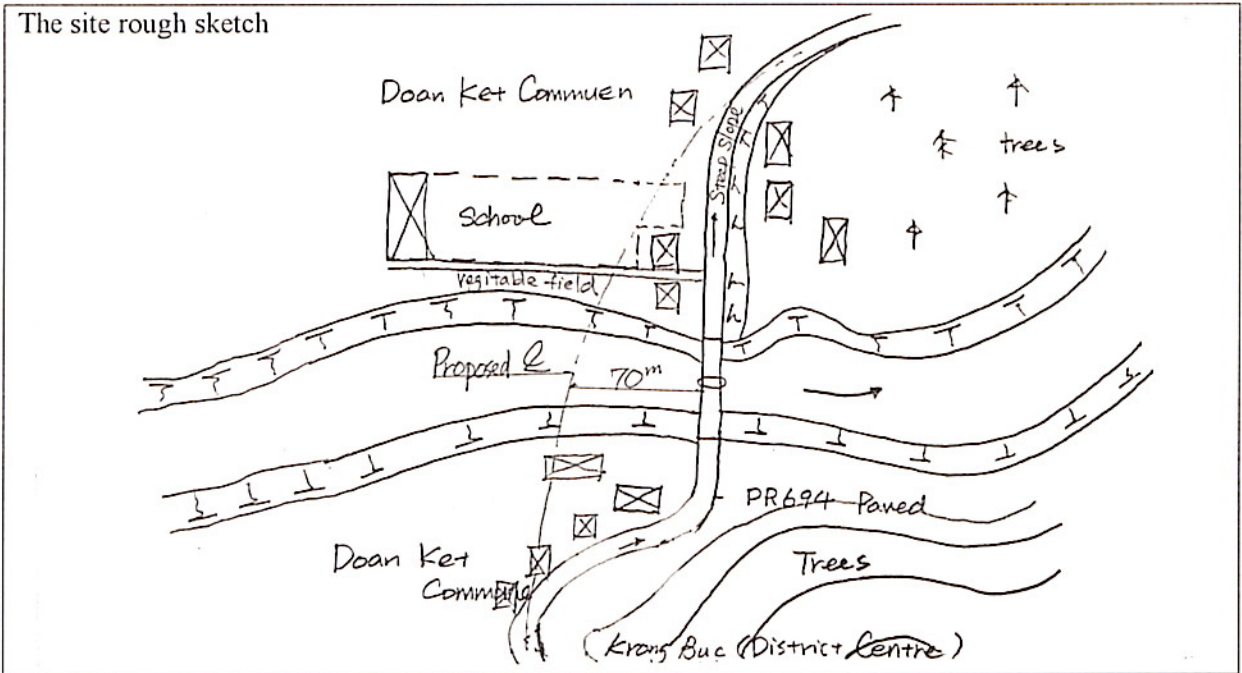 The site rough sketch
Doan Ket Commuen
Steep Slope
trees
School
vegitable field
Proposed ℄
70m
PR694 Paved
Doan Ket
Commune
Trees
Krong Buc (District Centre)